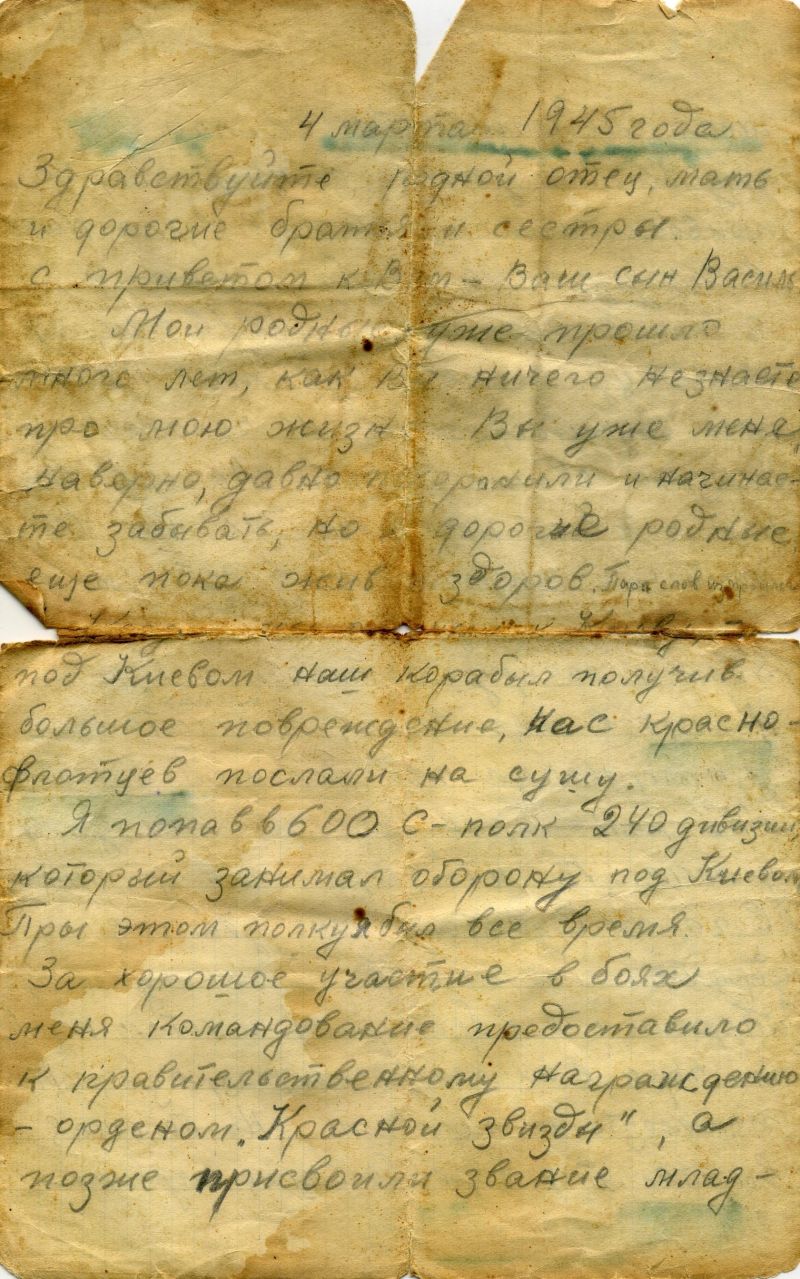 4 марта 1945 года.
Здравствуйте родной отец, мать
и дорогие братья и сестры.
с приветом к Вам – Ваш сын Василь
Мои родные уже прошло
много лет, как Вы ничего незнаете
про мою жизнь Вы уже меня,
наверно, давно похоронили и начинае-
те забывать, но я дорогие родные
еще пока жив и здоров. Пара слов
под Киевом наш корабыл получив
большое повреждение, нас красно-
флотцев послали на сушу.
Я попав в 600 С-полк 240 дивизии,
который занимал оборону под Киевом
Пры этом полку я был все время.
За хорошое участие в боях
меня командование предоставило
к правительственному награждению
– орденом „Красной звизды", а
позже присвоили звание млад-